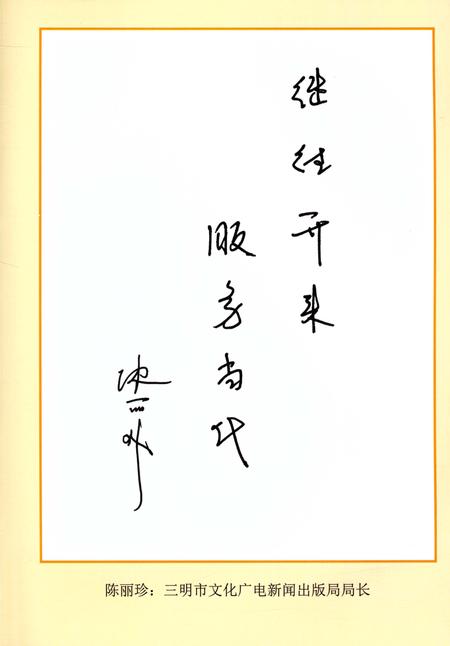 继往开来
服务当代
陈丽珍
陈丽珍：三明市文化广电新闻出版局局长